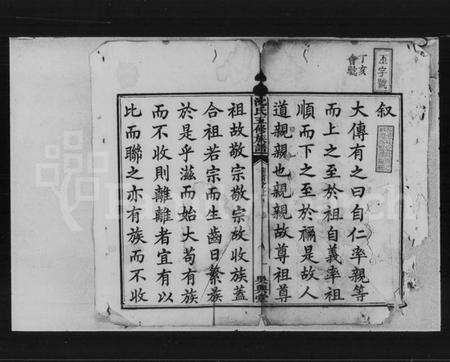 丁亥
會號
叙
大傳有之曰自仁率親等
而上之至於祖自義率祖
順而下之至於禰是故人
道親親也親親故尊祖尊
沈氏五修族譜
吳興堂
祖故敬宗敬宗故收族蓋
合祖若宗而生齒日繁族
於是乎滋而始大苟有族
而不收則離離者宜有以
比而聯之亦有族而不收